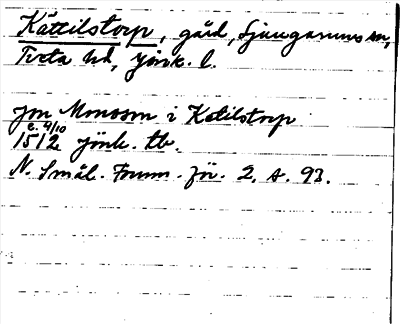 Kättilstorp, gård, Ljunganums sn,
Tveta hd, Jönk. l.
Jon Monsson i Katilstorp
e. 4/10
1512 Jönk. tb.
N. Smål. Fornm. för. 2, s. 93.